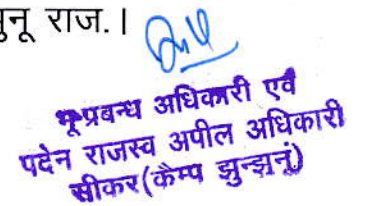 झुनू राज.।
भू-प्रबन्ध अधिकारी एवं
पदेन राजस्व अपील अधिकारी
सीकर(कैम्प झुन्झुनूं)